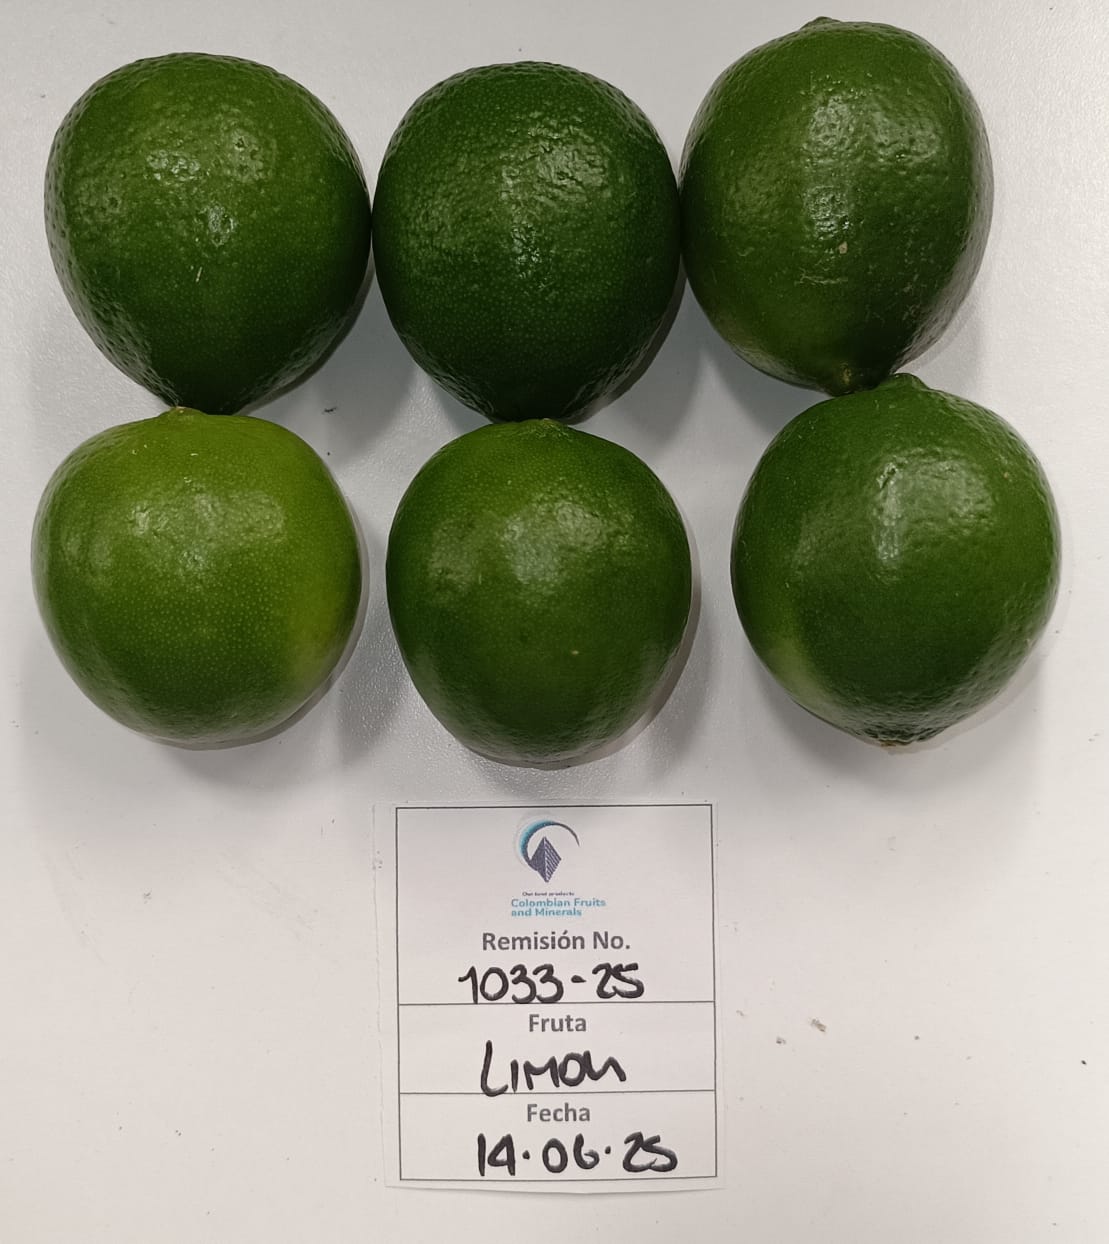 Our best products
Colombian Fruits
and Minerals
Remisión No.
1033-25
Fruta
Limon
Fecha
14·06·25